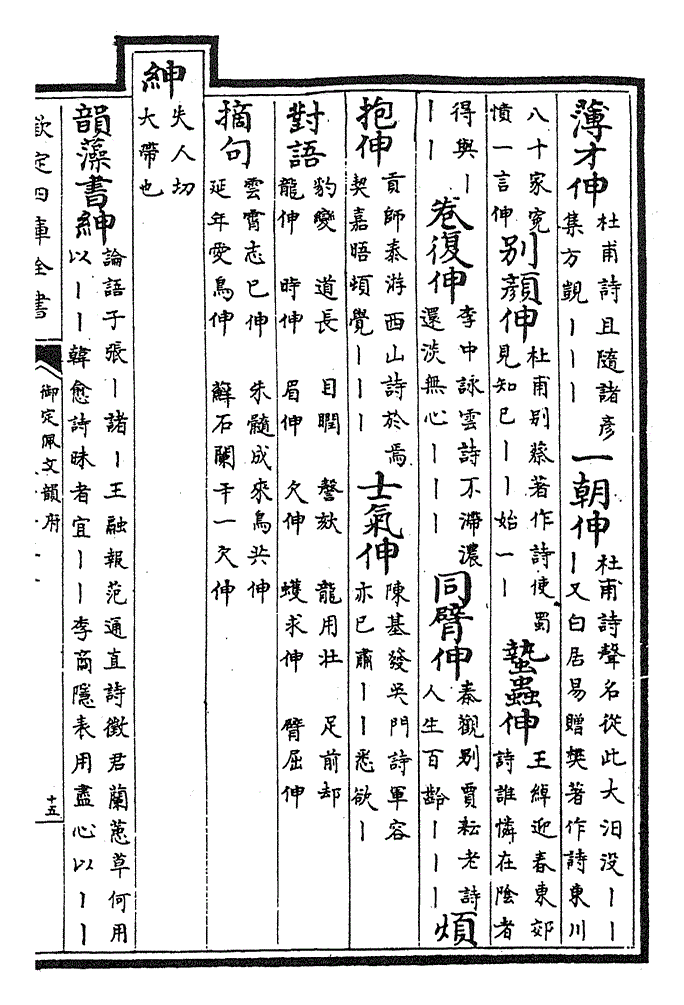 薄才伸 杜甫詩且隨諸彥集方覬丨丨丨 一朝伸 杜甫詩聲名從此大汨没丨丨丨又白居易贈樊著作詩東川
八十家寃憤一言伸 别顔伸 杜甫别蔡著作詩使蜀見知已丨丨始一丨 蟄蟲伸 王綽迎春東郊詩誰憐在陰者
得與丨丨丨 卷復伸 李中詠雲詩不滯濃還淡無心丨丨丨 同臂伸 秦觀别賈耘老詩人生百齡丨丨丨 煩
抱伸 貢師泰游西山詩於焉契嘉晤頃覺丨丨丨 士氣伸 陳基發吳門詩軍容亦已肅丨丨悉欲丨
對語 豹變 道長 目瞤 謦欬 龍用壮 足前却
龍伸 時伸 眉伸 欠伸 蠖求伸 臂屈伸
摘句 雲霄志已伸 朱髓成來鳥共伸
延年愛鳥伸 蘚石闌干一欠伸
紳 失人切大帶也
韻藻 書紳 論語子張丨諸丨王融報范通直詩徵君蘭蕙草何用以丨丨韓愈詩昧者宜丨丨李商隱表用盡心以丨丨
欽定四庫全書
御定佩文韻府
十五